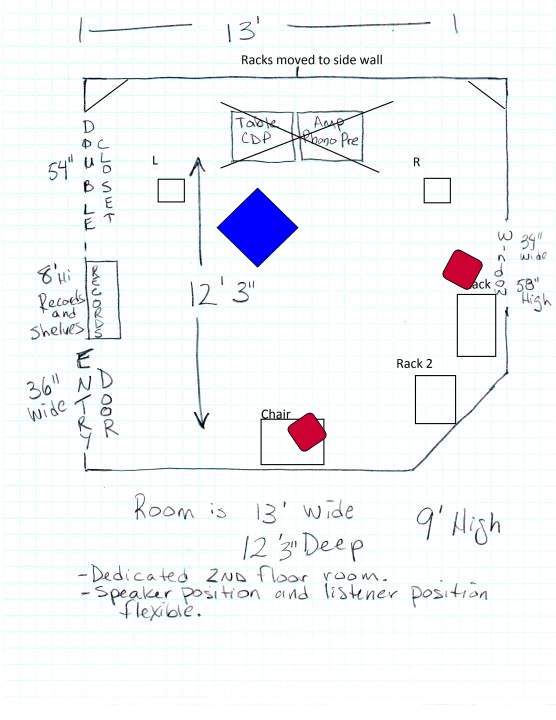 13'
Racks moved to side wall
Table
CDP
Amp
Phono Pre
L
R
54"
DOUBLE
CLOSET
12' 3"
Window
39"
Wide
58"
High
8' Hi
Records
and
Shelves
RECORDS
ack
Rack 2
36"
Wide
ENTRY
DOOR
Chair
Room is 13' Wide
12'3" Deep
9' High
-Dedicated 2ND floor room.
-Speaker position and listener position
flexible.